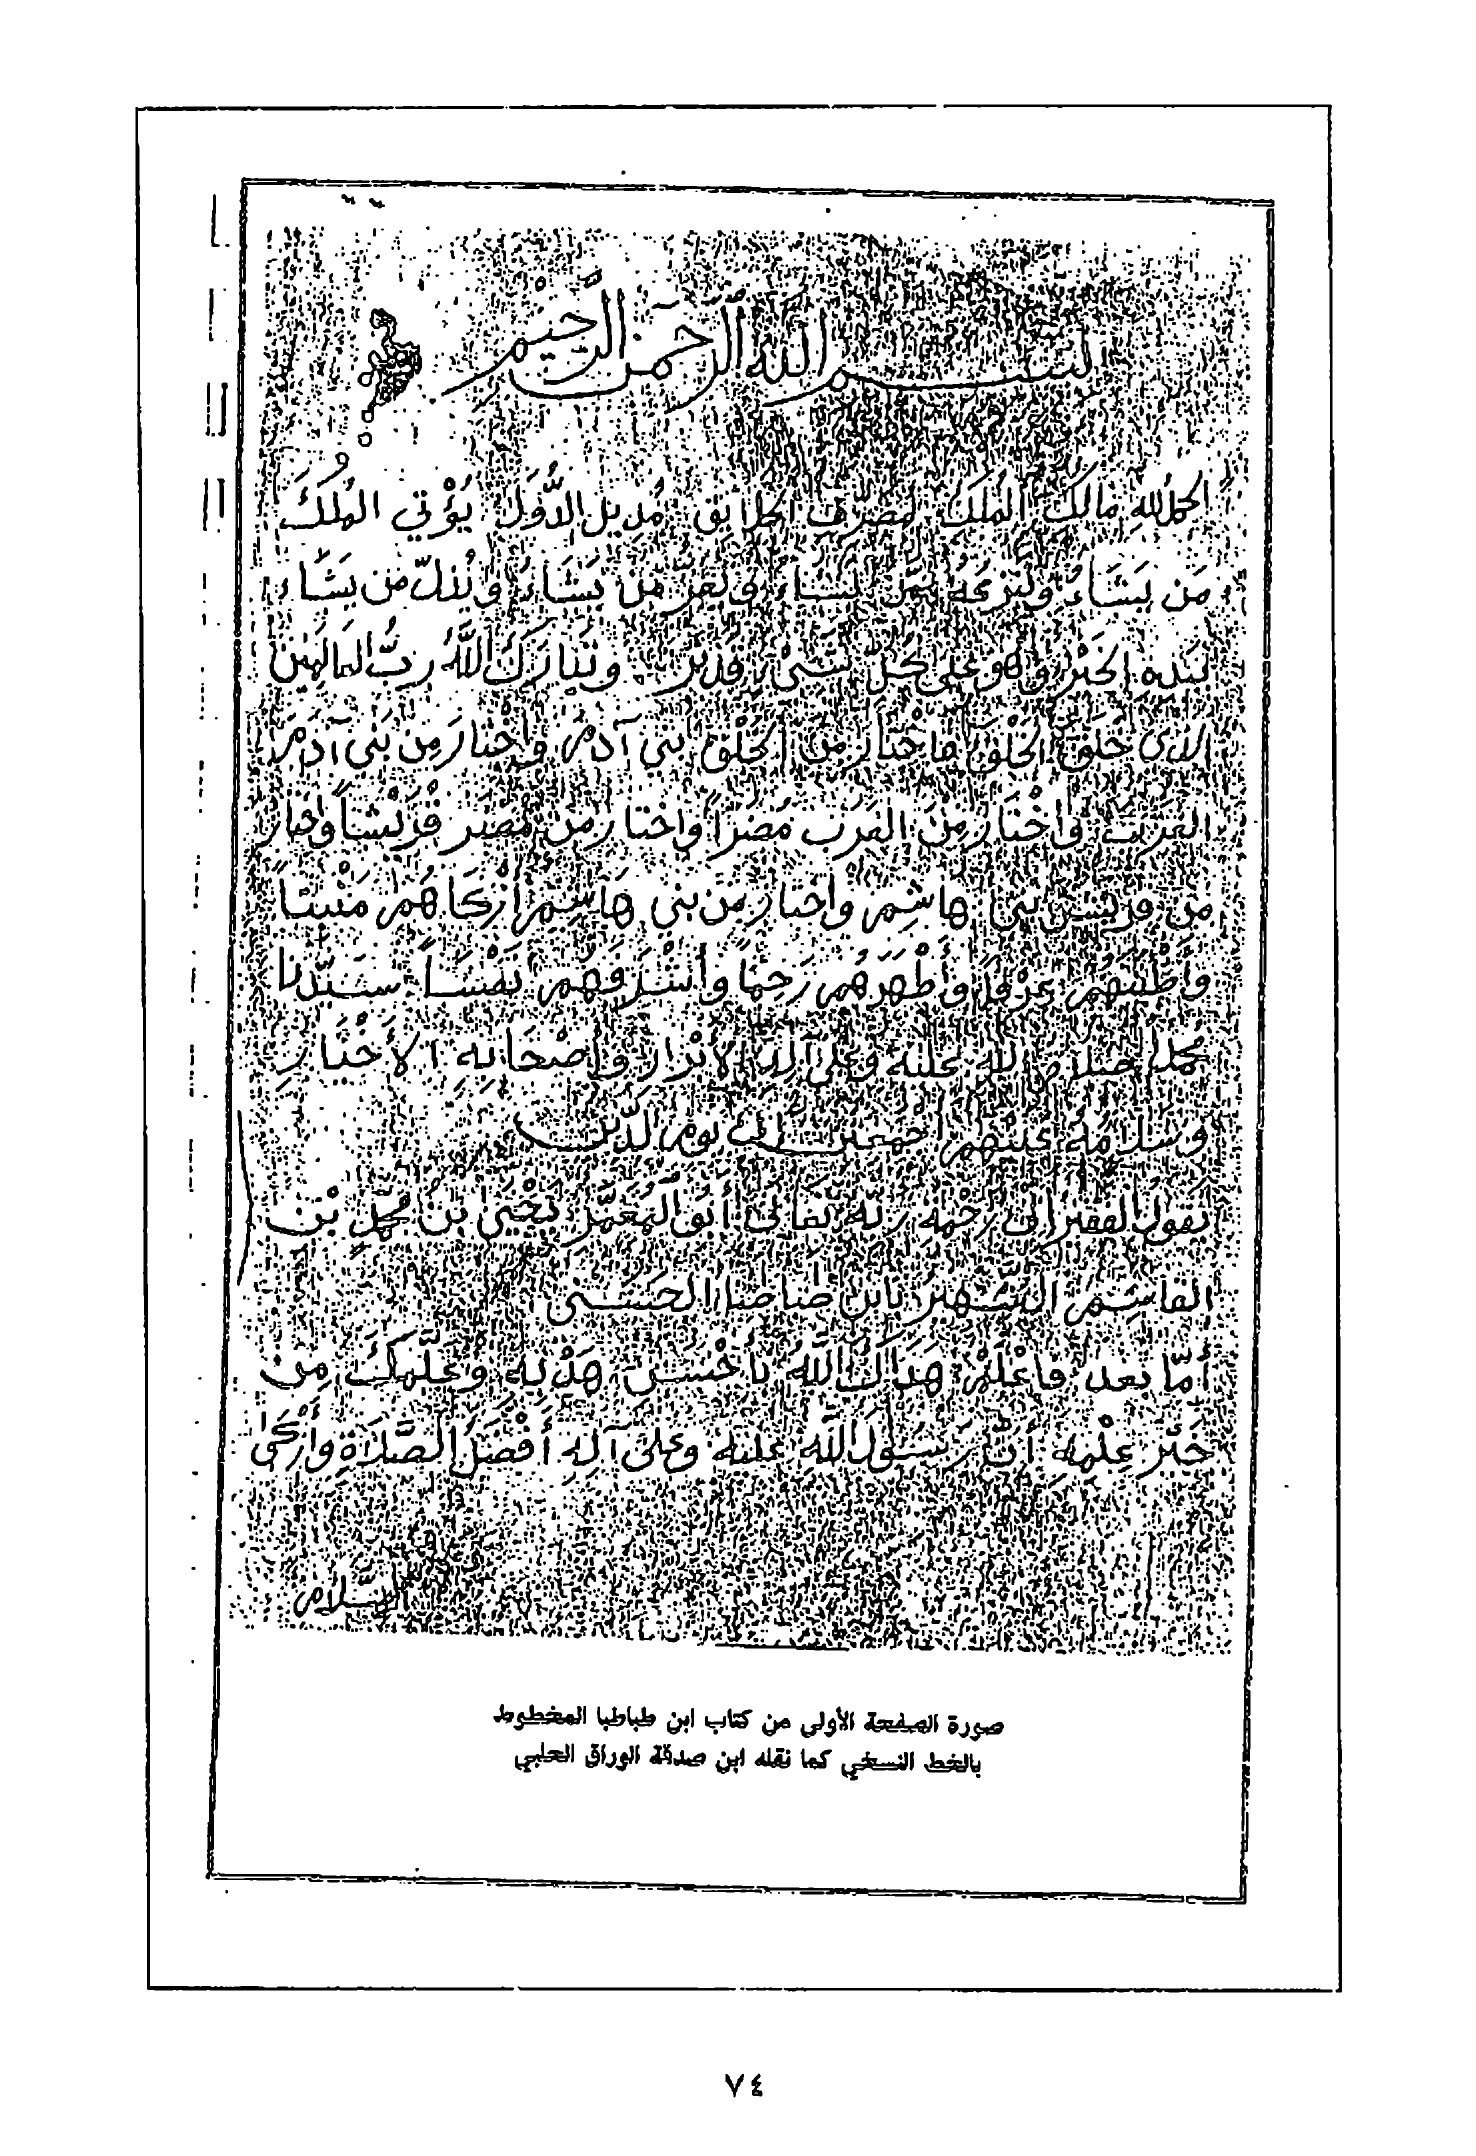 بسم الله الرحمن الرحيم
الحمد لله مالك الملك مصرف الخلايق مديل الدُّوَل يُؤْتي المُلكَ
مَن يَشَاءُ وينزعه ممن يشاء ويعزّ من يَشَاءُ ويُذلّ من يشَاء
بيَده الخَيْر وهو على كلّ شيْء قدير وتَبَارَكَ اللهُ ربُّ العالمين
الذي خلق الخلق فاختار من الخَلْق بني آدم واخْتارَ مِن بَني آدَم
العرب واخْتَار مِن العَرب مُضراً واختارَ من مُضر قُرَيْشاً واختار
من قريش بني هاشِم وأختار مِن بَني هَاشِم أزْكَاهُم
وأطْيبهم عِرقا وأطْهَرهُم رَحِمًا وأشْرَفهم نَفْسَاً سَيّدنا
محمد صلاة الله عليه وعلى آله الأبْرار وأصْحَابه الأخْيَار
وسلامُهُ عليْهم أجمعين إلى يوم الدّين
يقول الفقير إلى رحمة ربه تعَالى أبُو المُعَمَّر يَحْيَى بن محمد بْن
القاسِم الشهير بابن طباطبا الحَسَني
أمّا بعد فاعْلَمْ هَدَاكَ اللهُ بأحْسَن هَدْيه وعَلَّمكَ مِن
خَيْر عِلْمه أنّ رَسُول الله عليه وعلى آله أفضَل الصَّلاة وأزْكى
السَّلام
صورة الصفحة الأولى من كتاب ابن طباطبا المخطوط
بالخط النسخي كما نقله ابن صدقة الوراق الحلبي
٧٤